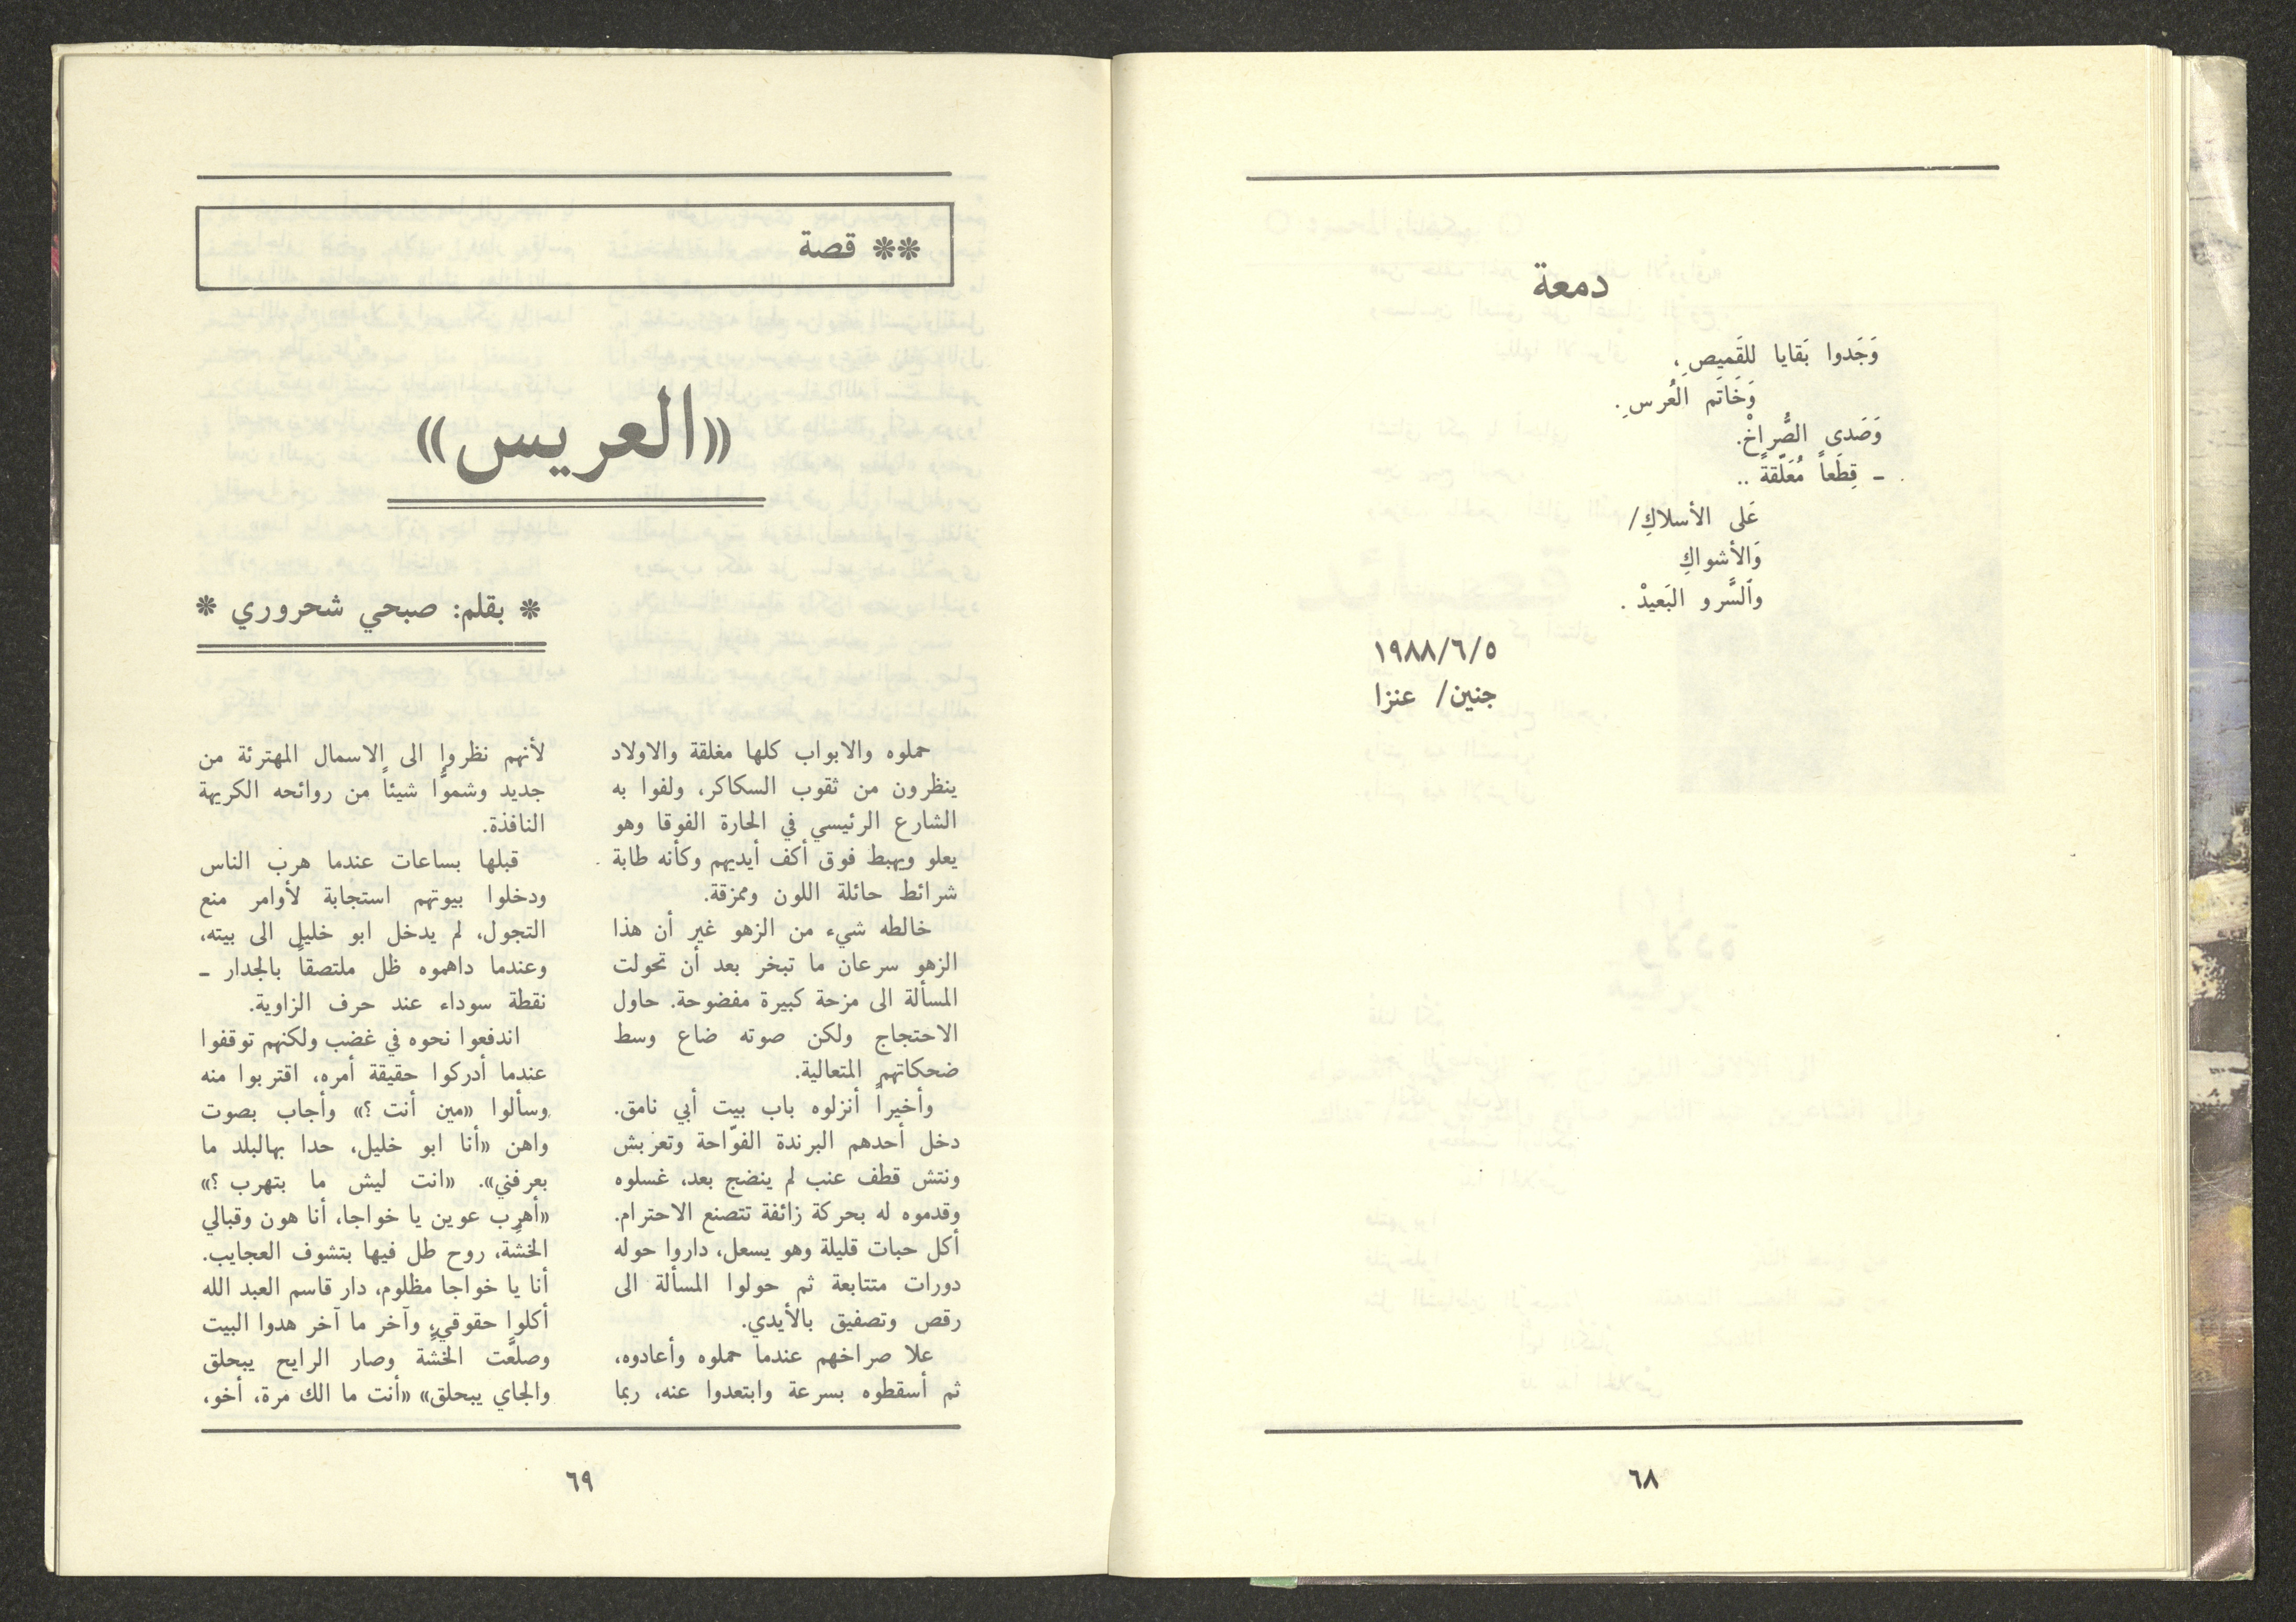 دمعة
وَجَدوا بَقايا للقَميصِ،
وَخَاتَم العُرسِ.
وَصَدى الصُّراخْ.
- قِطَعاً مُعَلّقةً ..
عَلى الأسلاكِ/
وَالأشواكِ
وٱلسَّرو البَعيدْ.
١٩٨٨/٦/٥
جنين/ عنزا
٦٨
** قصة
«العريس»
* بقلم: صبحي شحروري *
حملوه والابواب كلها مغلقة والاولاد
ينظرون من ثقوب السكاكر، ولفوا به
الشارع الرئيسي في الحارة الفوقا وهو
يعلو ويهبط فوق أكف أيديهم وكأنه طابة
شرائط حائلة اللون وممزقة.
خالطه شيء من الزهو غير أن هذا
الزهو سرعان ما تبخر بعد أن تحولت
المسألة الى مزحة كبيرة مفضوحة. حاول
الاحتجاج ولكن صوته ضاع وسط
ضحكاتهم المتعالية.
وأخيراً أنزلوه باب بيت أبي نامق.
دخل أحدهم البرندة الفوّاحة وتعزبش
ونتش قطف عنب لم ينضج بعد، غسلوه
وقدموه له بحركة زائفة تتصنع الاحترام.
أكل حبات قليلة وهو يسعل، داروا حوله
دورات متتابعة ثم حولوا المسألة الى
رقص وتصفيق بالأيدي.
علا صراخهم عندما حملوه وأعادوه،
ثم أسقطوه بسرعة وابتعدوا عنه، ربما
لأنهم نظروا الى الاسمال المهترئة من
جديد وشموَّا شيئاً من روائحه الكريهة
النافذة.
قبلها بساعات عندما هرب الناس
ودخلوا بيوتهم استجابة لأوامر منع
التجول، لم يدخل ابو خليل الى بيته،
وعندما داهموه ظل ملتصقاً بالجدار -
نقطة سوداء عند حرف الزاوية.
اندفعوا نحوه في غضب ولكنهم توقفوا
عندما أدركوا حقيقة أمره، اقتربوا منه
وسألوا «مين أنت ؟» وأجاب بصوت
واهن «أنا ابو خليل، حدا بهالبلد ما
بعرفني». «انت ليش ما بتهرب ؟»
«أهرب عوين يا خواجا، أنا هون وقبالي
الخشّة، روح طل فيها بتشوف العجايب.
أنا يا خواجا مظلوم، دار قاسم العبد الله
أكلوا حقوقي، وآخر ما آخر هدوا البيت
وصلعَّت الخشّة وصار الرايح يبحلق
والجاي يبحلق» «أنت ما الك مرة، أخو،
٦٩